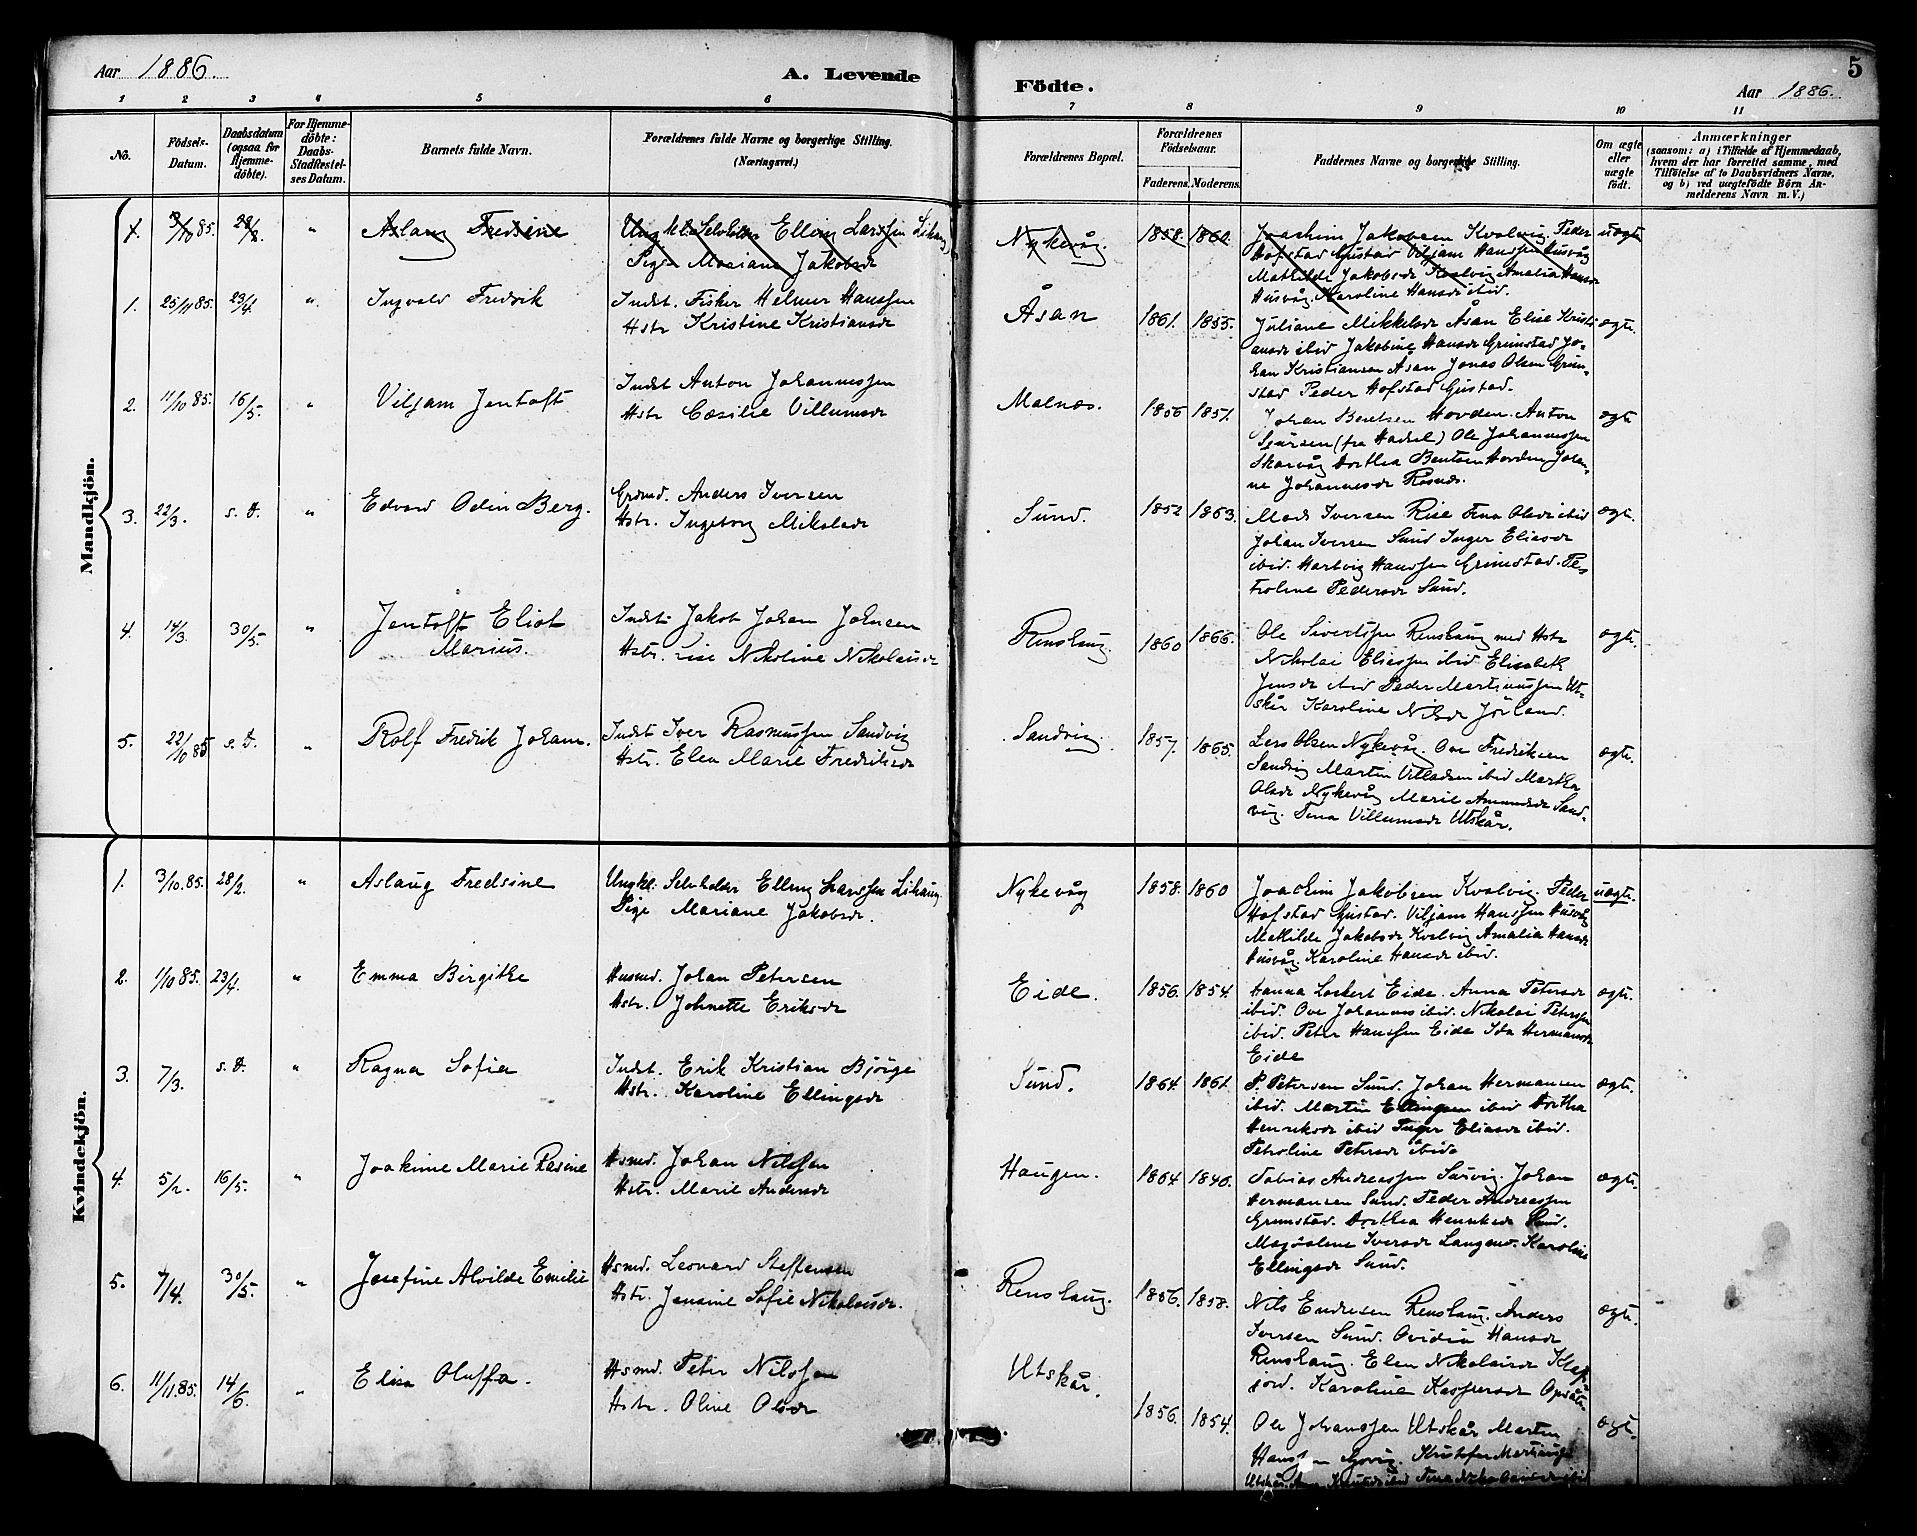 Aar 1886.
A. Levende
Födte.
5
Aar 1886.
1 2 3 4 5 6 7 8 9 10 11
No.
Födsels-Datum.
Daabsdatum (ogsaa for Hjemme-döbte).
For Hjemme-döbte: Daabs-Stadfestel-ses Datum.
Barnets fulde Navn.
Forældrenes fulde Navne og borgerlige Stilling.
(Næringsvei.)
Forældrenes Bopæl.
Forældrenes Födselsaar.
Faderens. Moderens.
Faddernes Navne og borgerlige Stilling.
Om ægte eller uægte födt.
Anmærkninger
(saasom: a) i Tilfælde af Hjemmedaab,
hvem der har forrettet samme, med
Tilföielse af to Daabsvidners Navne,
og b) ved uægtefödte Börn An-
melderens Navn m. V.)
Mandkjön.
1. 3/10 85. 28/2 " Aslaug Fredsine
Ungkl. Selvholder Elling Larssen Lihaug
Pige Mariane Jakobsdr
Nykvåg. 1858. 1860.
Joachim Jakobsen Kvalvig. Peder
Hofstad Gustad Viljam Hanssen Husvåg
Mathilde Jakobsdr Kvalvig Amalia Hansdr
Husvåg. Karoline Hansdr ibid.
uægte
1. 25/11 85. 23/4. " Ingvald Fredrik
Indst. Fisker Helmer Hanssen
Hstr Kristine Kristiansdr
Åsan 1861. 1855.
Juliane Mikkelsdr Åsan Elise Kristi-
ansdr ibid Jakobine Hansdr Grimstad Jo-
han Kristiansen Åsan Jonas Olsen Grim-
stad Peder Hofstad Gustad.
ægte.
2. 11/10 85. 16/5. " Viljam Jentoft
Indst Anton Johannessen
Hstr Cæsilie Villumsdr
Malnæs. 1856 1851.
Johan Bentsen Hovden. Anton
Sjursen (fra Hadsel) Ole Johannessen
Skarvåg Dorthea Bentsen Hovden Johan-
ne Johannesdr Råsnæs.
ægte
3. 22/3. s. D. " Edvard Odin Berg.
Grdmd. Anders Iversen
Hstr. Ingeborg Mikalsdr
Sund. 1852 1863.
Mads Iversen Rise Tina Olsdr ibid
Johan Iversen Sund Inger Eliasdr
ibid. Hartvig Hanssen Grimstad. Pe-
troline Pedersdr Sund.
ægte.
4. 14/3. 30/5. " Jentoft Eliot
Marius.
Indst. Jakob Johan Johnsen
Hstr. Lise Nikoline Nikolaisdr
Renshaug. 1860 1866.
Ole Sivertsen Renshaug med Hstr
Nikolai Eliassen ibid Elisabet
Jensdr ibid Peder Martinussen Ut-
skår Karoline Nilsdr Jörland.
ægte.
5. 22/10 85 s. D. " Rolf Fredrik Johan.
Indst Iver Rasmussen Sandvig
Hstr. Elen Marie Fredriksdr
Sandvig. 1857. 1865.
Lars Olsen Nykvåg. Ove Fredriksen
Sandvig Martin Villadsen ibid Martha
Olsdr Nykvåg Marie Amundsdr Sand-
vig. Tina Villumsdr Utskår.
ægte.
Kvindekjön.
1. 3/10.85. 28/2. " Aslaug Fredsine
Ungkl. Selvholder Elling Larssen Lihaug.
Pige Mariane Jakobsdr.
Nykvåg 1858. 1860
Joachim Jakobsen Kvalvig. Peder
Hofstad Gustad. Viljam Hanssen Husvåg
Mathilde Jakobsdr Kvalvig Amalia Hansdr
Husvåg. Karoline Hansdr ibid.
uægte.
2. 1/10 85. 23/4. " Emma Birgithe
Husmd. Johan Petersen
Hstr. Johnette Eriksdr
Eide. 1856. 1854.
Hanna Lockert Eide. Anna Petersdr
ibid. Ove Johannes ibid. Nikolai Peterssen
ibid. Peter Hanssen Eide Ida Hermansdr
Eide
ægte.
3. 7/3. s. D. " Ragna Sofia
Indst. Erik Kristian Bjørge
Hstr. Karoline Ellingsdr
Sund. 1864. 1861.
P. Petersen Sund. Johan Hermansen
ibid. Martin Ellingsen ibid Dorthea
Henriksdr ibid Inger Eliasdr ibid.
Petroline Petersdr ibid.
ægte.
4. 5/2. 16/5. " Joakime Marie Pasine
Hsmd. Johan Nilssen
Hstr. Marie Andersdr
Haugen. 1864 1840.
Tobias Andreassen Survig. Johan
Hermansen Sund. Peder Andreassen
Grimstad. Dorthea Henriksdr Sund.
Magdalene Iversdr Langnd. Karoline
Ellingsdr Sund.
ægte.
5. 7/4. 30/5. " Josefine Alvilde Emilie
Hsmd. Leonard Steffensen
Hstr. Jensine Sofie Nikolaisdr.
Renshaug. 1856. 1858.
Nils Endresen Renshaug. Anders
Iversen Sund. Ovidia Hansdr
Renshaug. Elen Nikolaisdr Klaf-
jord. Karoline Kaspersdr Opsåte
ægte.
6. 11/11.85. 14/6. " Elisa Oluffa.
Hsmd. Peter Nilssen
Hstr. Oline Olsdr
Utskår. 1856. 1854.
Ole Johanssen Utskår Martin
Kristofer
Utskår
ægte.